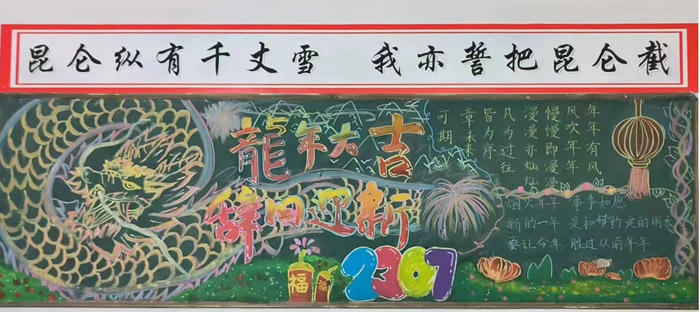 昆仑纵有千丈雪 我亦誓把昆仑截
龙年大吉
辞旧迎新
年年有风
风吹年年
慢慢即漫漫
漫漫亦灿灿
凡为过往
皆为序
章未来
可期
烟火年年 事事如愿
新的一年 是和梦约定的明天
要让今年 胜过从前年年
福
2007